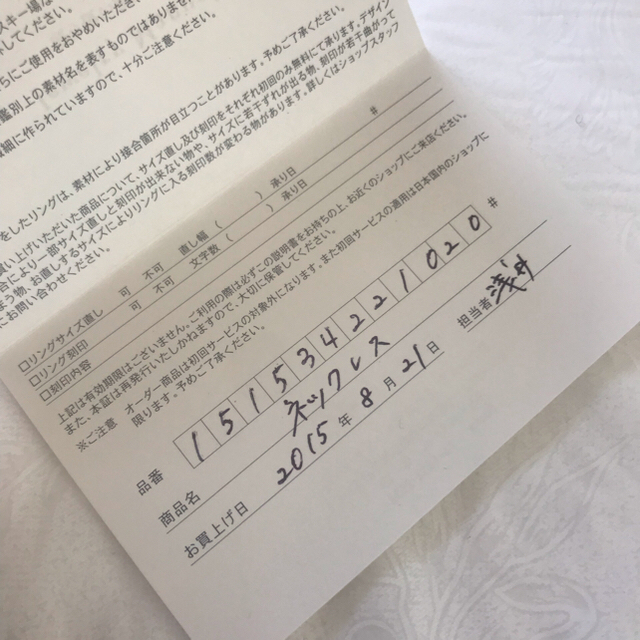 スキー場な
してください。
らにご使用をおやめいただ
鑑別上の素材名を表すものではありませ
詳細に作られていますので、十分ご注意ください。
をしたリングは、素材により接合箇所が目立つことがあります。予めご了承ください。
買い上げいただいた商品について、サイズ直し及び刻印をそれぞれ初回のみ無料にて承ります。デザイン
合により一部サイズ直しと刻印が出来ない物や、サイズに若干ずれが出る物、刻印が若干曲がって
まう物、お直しするサイズによりリングに入る刻印数が変わる物があります。詳しくはショップスタッフ
にお問い合わせください。
□リングサイズ直し 可 不可 直し幅 ( ) 承り日 #
□リング刻印 可 不可 文字数 ( ) 承り日
□刻印内容
上記は有効期限はございません。ご利用の際は必ずこの説明書をお持ちの上、お近くのショップにご来店ください。
また、本証は再発行いたしかねますので、大切に保管してください。
※ご注意 オーダー商品は初回サービスの対象外になります。また初回サービスの適用は日本国内のショップに
限ります。予めご了承ください。
品番 1515342210 20 #
商品名 ネックレス
お買上げ日 2015 年 8 月 21 日 担当者 浅井